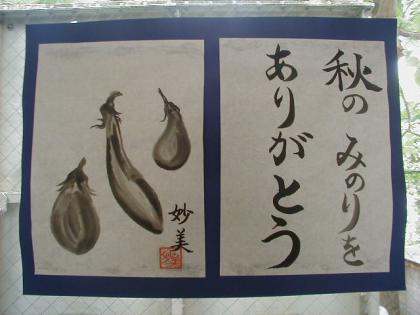 秋の みのりを
ありがとう
妙美